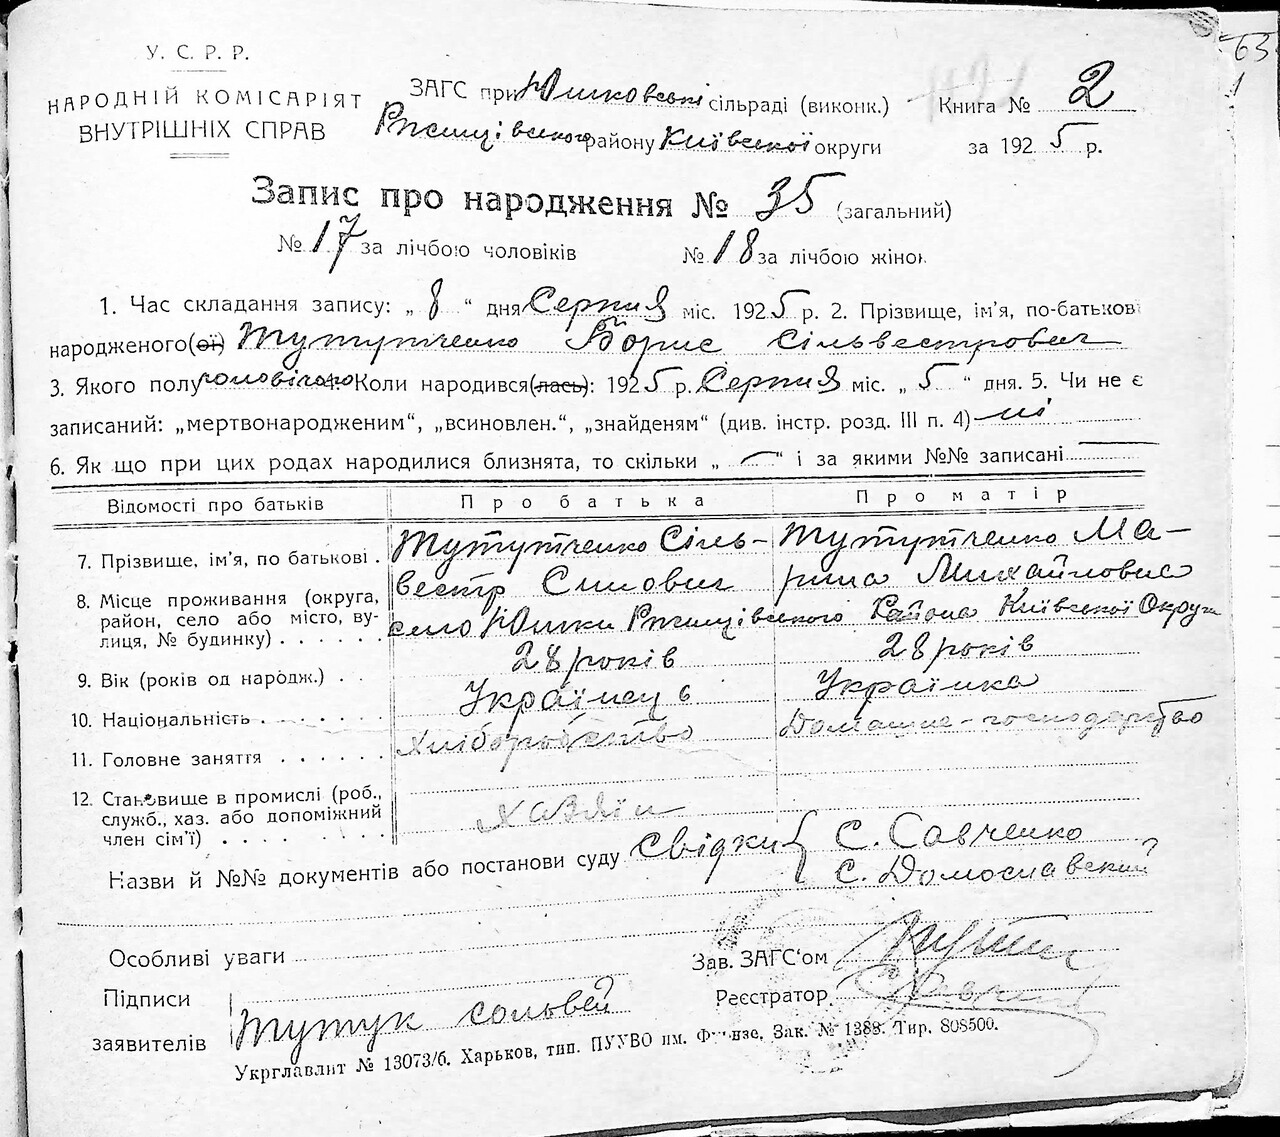 63
1
У. С. Р. Р.
НАРОДНІЙ КОМІСАРІЯТ
ВНУТРІШНІХ СПРАВ
ЗАГС при Юшковські сільраді (виконк.)
Ржищівського району Київської округи
Книга № 2
за 1925 р.
Запис про народження № 35 (загальний)
№ 17 за лічбою чоловіків № 18 за лічбою жінок
1. Час складання запису: „ 8 “ дня Серпня міс. 1925 р. 2. Прізвище, ім’я, по-батьков
народженого(ої) Тутутченко Борис Сільвестрович
3. Якого полу чоловічого 4. Коли народився(лась): 1925 р. Серпня міс. „ 5 “ дня. 5. Чи не є
записаний: „мертвонародженим“, „всиновлен.“, „знайденям“ (див. інстр. розд. III п. 4) ні
6. Як що при цих родах народилися близнята, то скільки „ — “ і за якими №№ записані —
Відомості про батьків Про батька Про матір
7. Прізвище, ім’я, по батькові . Тутутченко Сіль-вестр Тутутченко Ма-рина Михайловна
8. Місце проживання (округа, район, село або місто, ву-лиця, № будинку) . . . . . . село Юшки Ржищівського Района Київської Округи
9. Вік (років од народж.) . . 28 років 28 років
10. Національність . . . . . . . Українець Українка
11. Головне заняття . . . . . . Хліборобство Домашнє-господарство
12. Становище в промислі (роб., служб., хаз. або допоміжний член сім’ї) . . . . Хазяїн
Назви й №№ документів або постанови суду Свідки { С. Савченко
С. Домославский
Особливі уваги
Зав. ЗАГС‘ом
Підписи
заявителів
Тутук сольвей
Реєстратор
Укрглавліт № 13073/б. Харьков, тип. ПУУВО им. Фрунзе, Зак. № 1388. Тир. 808500.